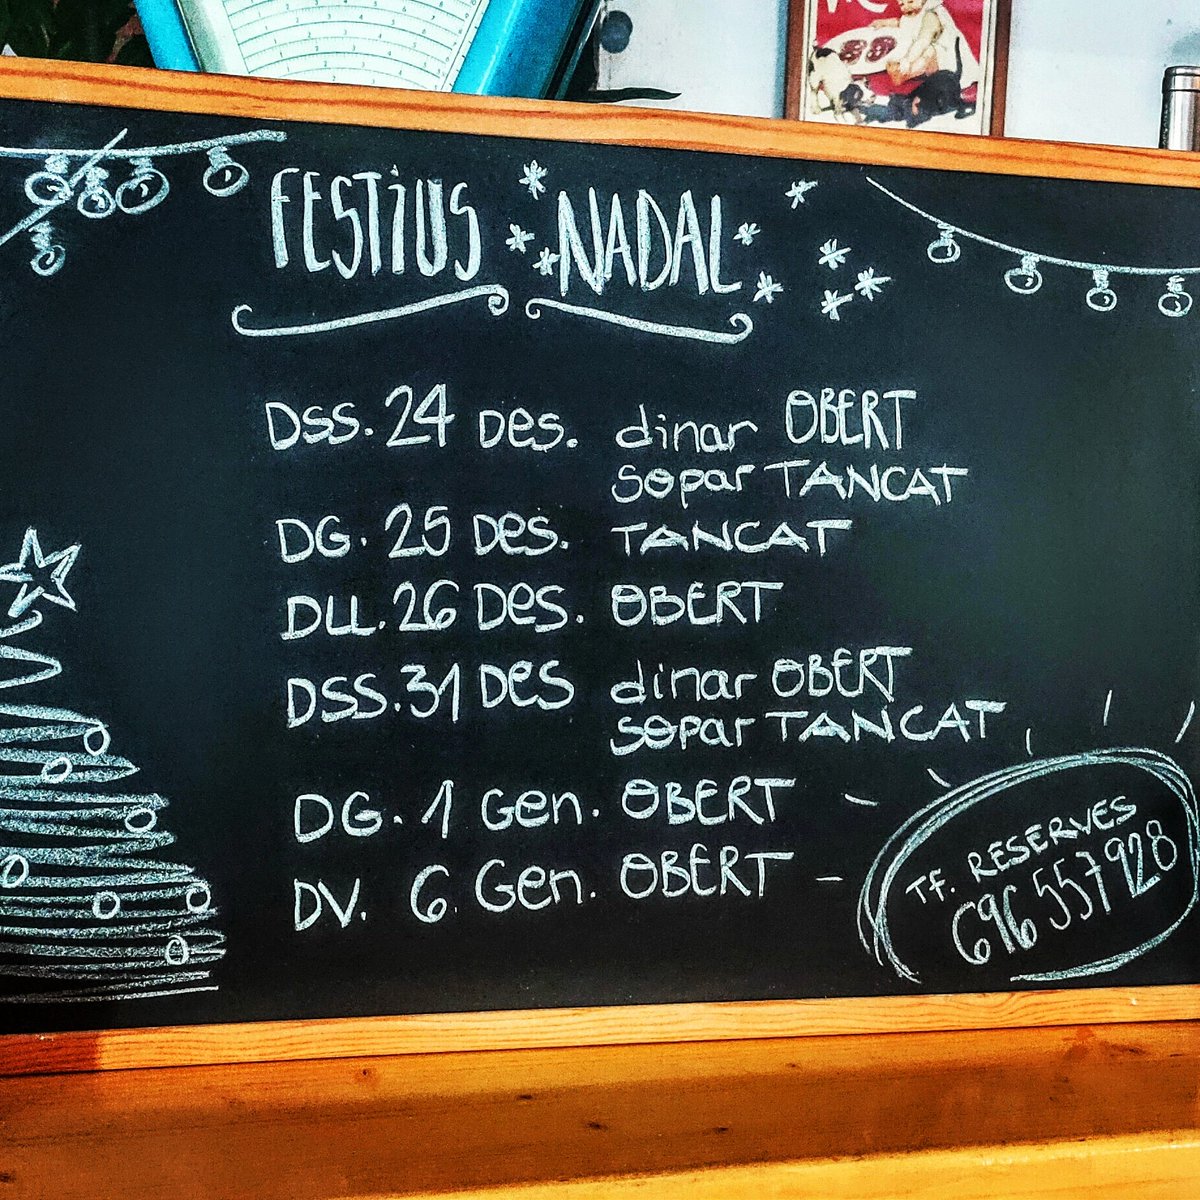 FESTiUS NADAL
DSS. 24 Des. dinar OBERT
sopar TANCAT
DG. 25 Des. TANCAT
DLL. 26 Des. OBERT
DSS. 31 Des dinar OBERT
sopar TANCAT
DG. 1 Gen. OBERT
DV. 6. Gen. OBERT
TF. RESERVES
696 557 928